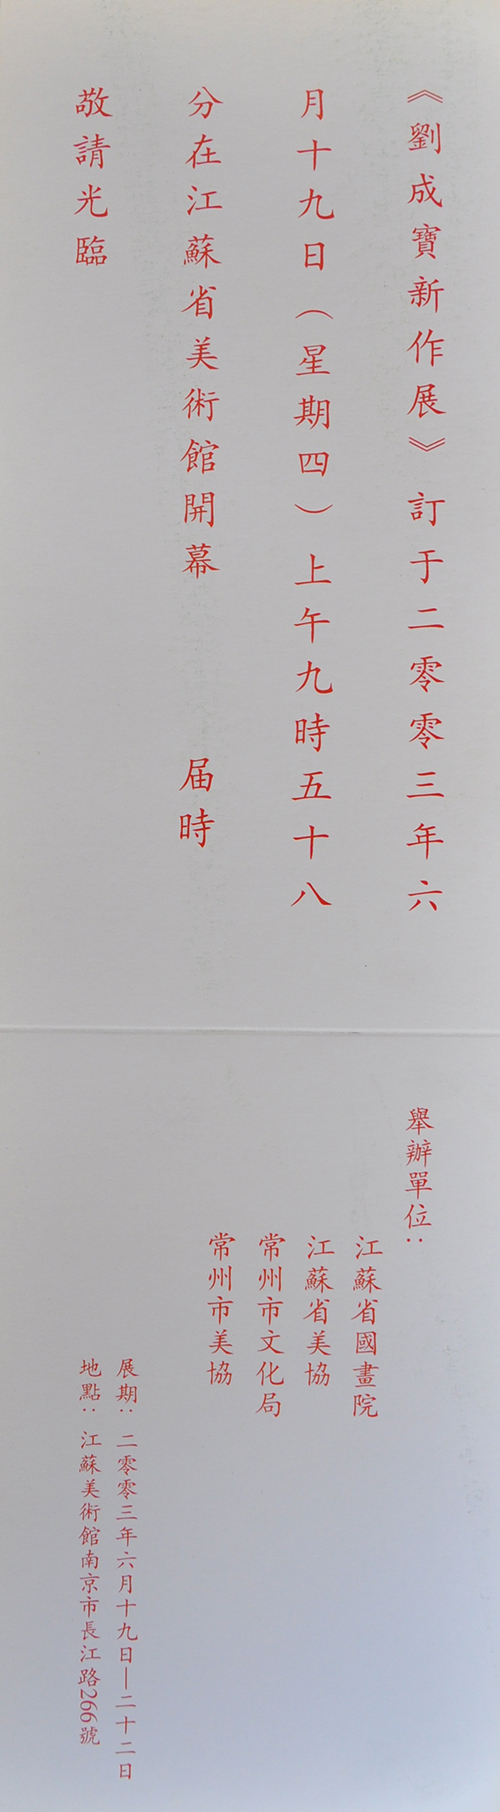 《劉成寶新作展》訂于二零零三年六
月十九日（星期四）上午九時五十八
分在江蘇省美術館開幕　　　届時
敬請光臨
舉辦單位：
江蘇省國畫院
江蘇省美協
常州市文化局
常州市美協
展期：二零零三年六月十九日—二十二日
地點：江蘇美術館南京市長江路266號